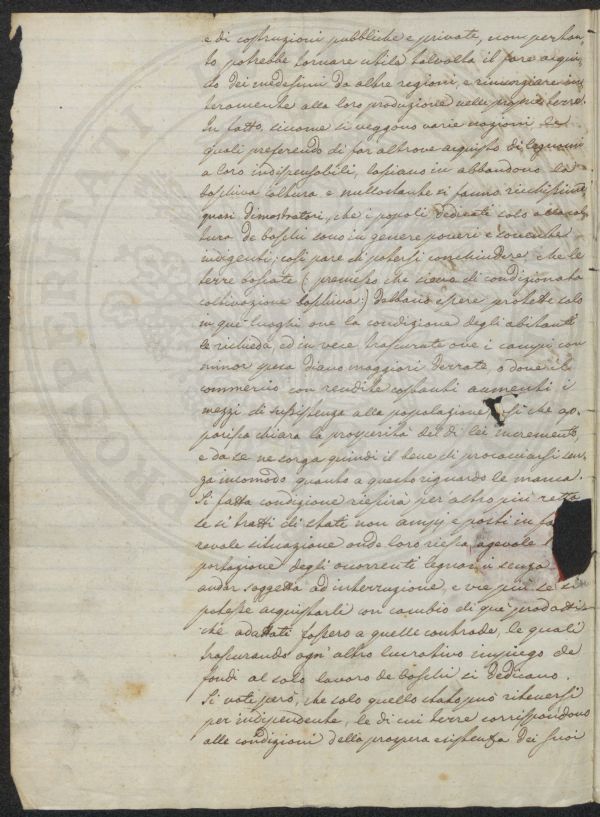 e di costruzioni pubbliche e private, non pertan-
to potrebbe tornare utile talvolta il fare acqui-
sto dei medesimi da altre regioni, e rinunziare in-
teramente alla loro produzione nelle proprie terre.
In fatto, siccome si veggono varie nazioni le
quali preferendo di far altrove acquisto di legnami
a loro indispensabili, lasciano in abbandono la
boschiva coltura e nullostante si fanno ricchissime
quasi dimostratori, che i popoli dedicati solo a
tura de boschi sono in genere poveri e
indigenti; così pare di potersi conchiudere che le
terre boscate (premesso che sieno di condizionata
coltivazione boschiva:) debbano essere protette solo
in que' luoghi ove la condizione degli abitanti
le richieda, ed in vece trascurate ove i campi con
minor spesa diano maggiori derrate, o dove il
commercio con rendite costanti aumenti i
mezzi di sussistenza alla popolazione, sì che ap-
parisca chiara la prosperità del di lei incremento,
e da se ne sorga quindi il bene di procacciarsi sen-
za incomodo quanto a questo riguardo le manca.
Sì fatta condizione riescirà per altro più retta
se si tratti di stati non ampj, e posti in fa
revole situazione onde loro riesca agevole
portazione degli occorrenti legnami senza
andar soggetta ad interruzione, e vie più se si
potesse acquistarli con cambio di que' prodotti
che adattati fossero a quelle contrade, le quali
trascurando ogn' altro lucrativo impiego de
fondi al solo lavoro de boschi si dedicano.
Si noti però, che solo quello stato può ritenersi
per indipendente, le di cui terre corrispondono
alle condizioni della prospera esistenza dei suoi
PROSPERITATI